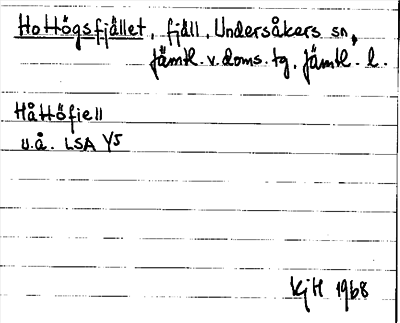 Hottögsfjället, fjäll, Undersåkers sn,
Jämtl. v. doms. tg. Jämtl. l.
Håttöfiell
u.å. LSA Y5
KjH 1968